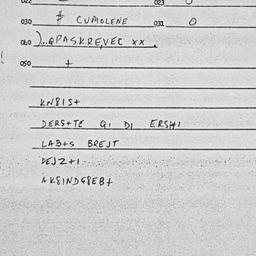 022 023
030 $ CUMOLENE 031 O
040 )..QPASKREVEC XX.
050 +
KN8IS+
DERS+TE GI DI ERSH1
LAB+S BREJT
DEJZ+1
AK8INDG8EB+